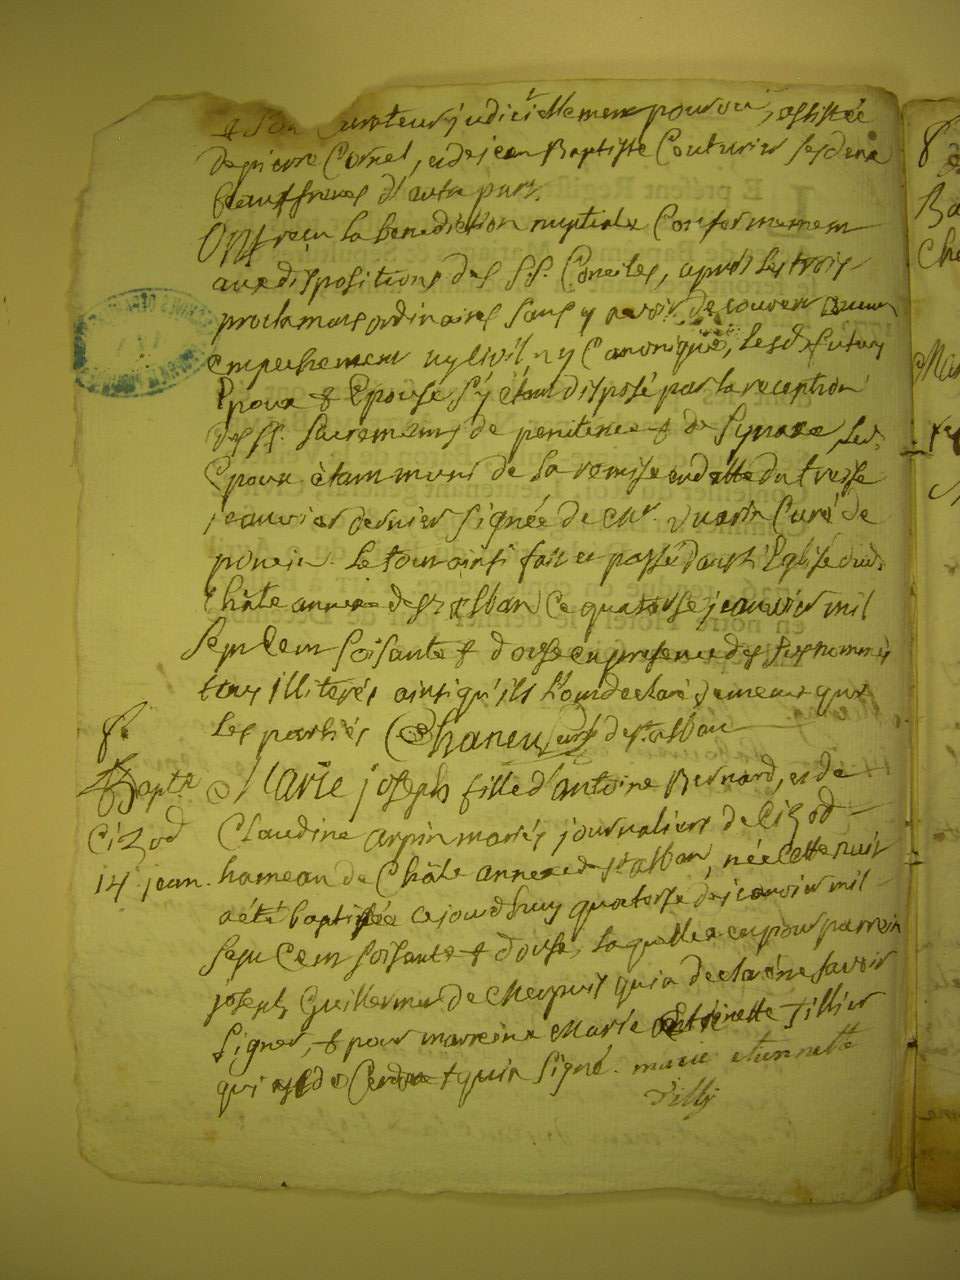 & son curateur judiciellement pourvu, assistée
de pierre Cornet, et de jean Baptiste Couturier ses deux
beauxfreres d'autre part.
Ont reçu la benediction nuptiale Conformement
aux dispositions des SS. Conciles, après les trois
proclamats ordinaires sans y avoir decouvert aucun
empechement ny Civil ny Canonique, lesd. futurs
Epoux & Epouse s'y étant disposé par la reception
des SS. Sacremens de penitence & de Synaxe led.
Epoux étant muni de la remise en datte du treise
jeanvier dernier signée de Mr. Curé de
poncin. Le tout ainsi fait et passé dans l'Eglise dud.
Châle annexe de St alban ce quatorse jeanvier mil
Sept Cent soisante & douse en presence des susnommés
tous illiterés ainsi qu'ils l'ont declaré de meme que
les partiés Chaneu Curé de st. alban
8.
Bapte
Cizod
14 jean.
Marie joseph fille d'antoine Bernard, et de
Claudine arpin mariés journaliers de Cizod
hameau de Châle annexe de St alban, née cette nuit
a été baptisée cejourdhuy quatorse de jeanvier mil
Sept Cent soisante & douse, laquelle a eu pour parrein
joseph Guillermet de qui a declaré ne savoir
signer, & pour marreine Marie Entoinette Tillier
qui est de Cerdon & qui a signé. marie etiennette
Tilly